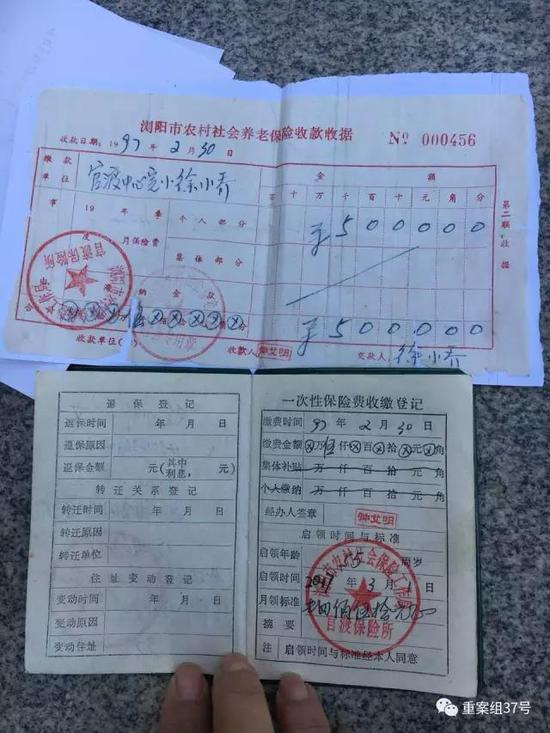 浏阳市农村社会养老保险收款收据
№ 000456
收款日期：1997年2月30日
缴款单位 官渡中心完小徐小乔
金额
百十万千百十元角分
事
19 年 季 个人部分
￥500000
度 月保险费
集体部分
缴纳金额
￥500000
收款单位
收款人 仲艾明
交款人 徐小乔
第二联：收据
官渡保险所
退保登记
退保时间 年 月 日
退保原因
退保金额 元（其中利息：元）
转迁关系登记
转迁时间 年 月 日
转迁原因
转迁单位
住址变动登记
变动时间 年 月 日
变动原因
变动住址
一次性保险费收缴登记
缴费时间 97年2月30日
缴费金额 ⊗万伍仟⊗百⊗拾⊗元⊗角
集体补贴 万仟百拾元角
个人缴纳 万仟百拾元角
经办人签章 仲艾明
启领时间与标准
启领年龄 55周岁
启领时间 年3月 日
月领标准
摘要
官渡保险所
注 启领时间与标准经本人同意
重案组37号